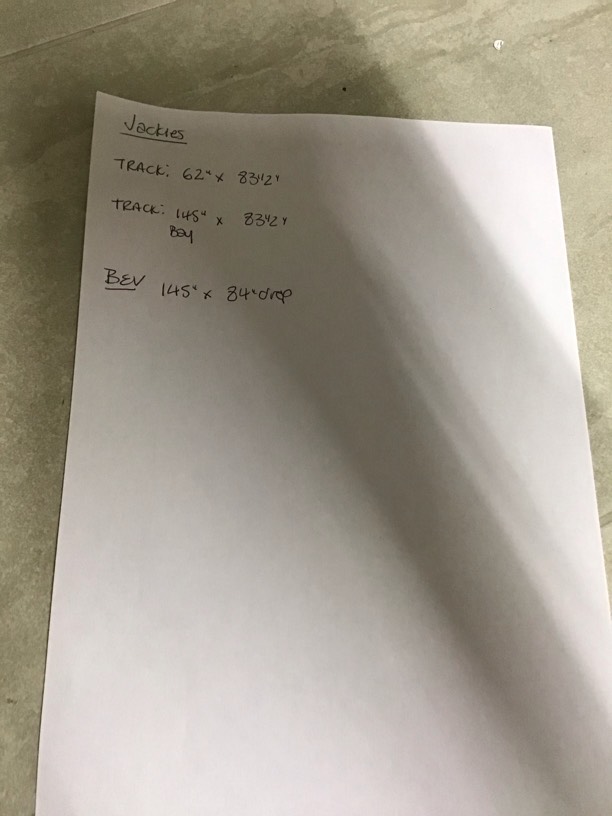 Jackies
TRACK: 62" x 83 1/2"
TRACK: 145" x 83 1/2"
Bay
BEV 145" x 84" drop